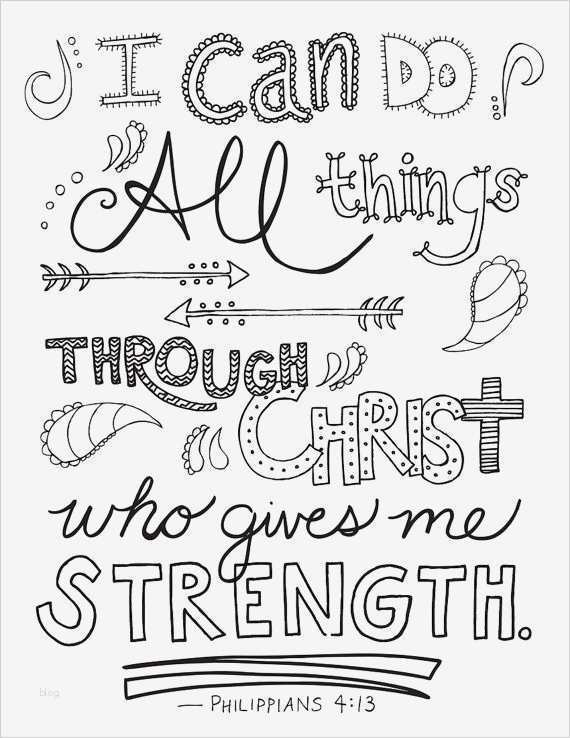 I can DO
All things
THROUGH
CHRIST
who gives me
STRENGTH.
— PHILIPPIANS 4:13
blog